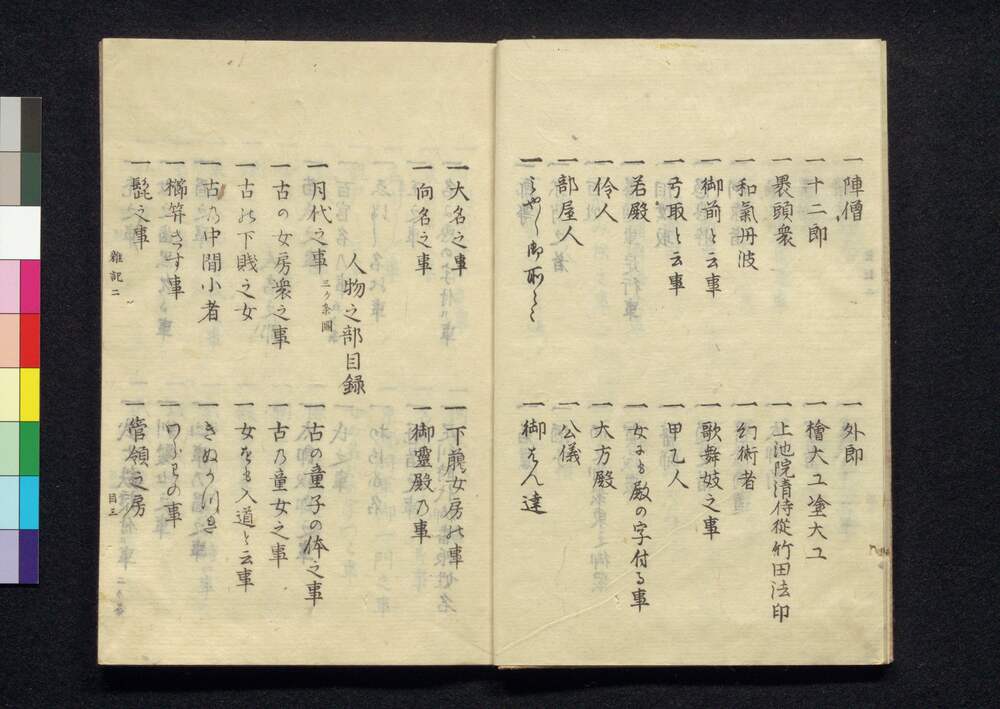 一陣僧
一外郎
一十二郎
一檜大工塗大工
一裹頭衆
一上池院清侍従竹田法印
一和氣丹波
一幻術者
一御前と云事
一歌舞妓之事
一弓取と云事
一甲乙人
一若殿
一女にも殿の字付る事
一伶人
一大方殿
一部屋人
一公儀
一御はん達
一大名之事
一下﨟女房の事
一向名之事
一御靈殿乃事
人物之部目録
一月代之事 三ヶ条圖
一古の童子の体之事
一古の女房衆之事
一古乃童女之事
一古の下賤之女
一女をも入道と云事
一古乃中間小者
一きぬかつき
一櫛笄さす事
一髭之事
一管領之房
雜記二
目三